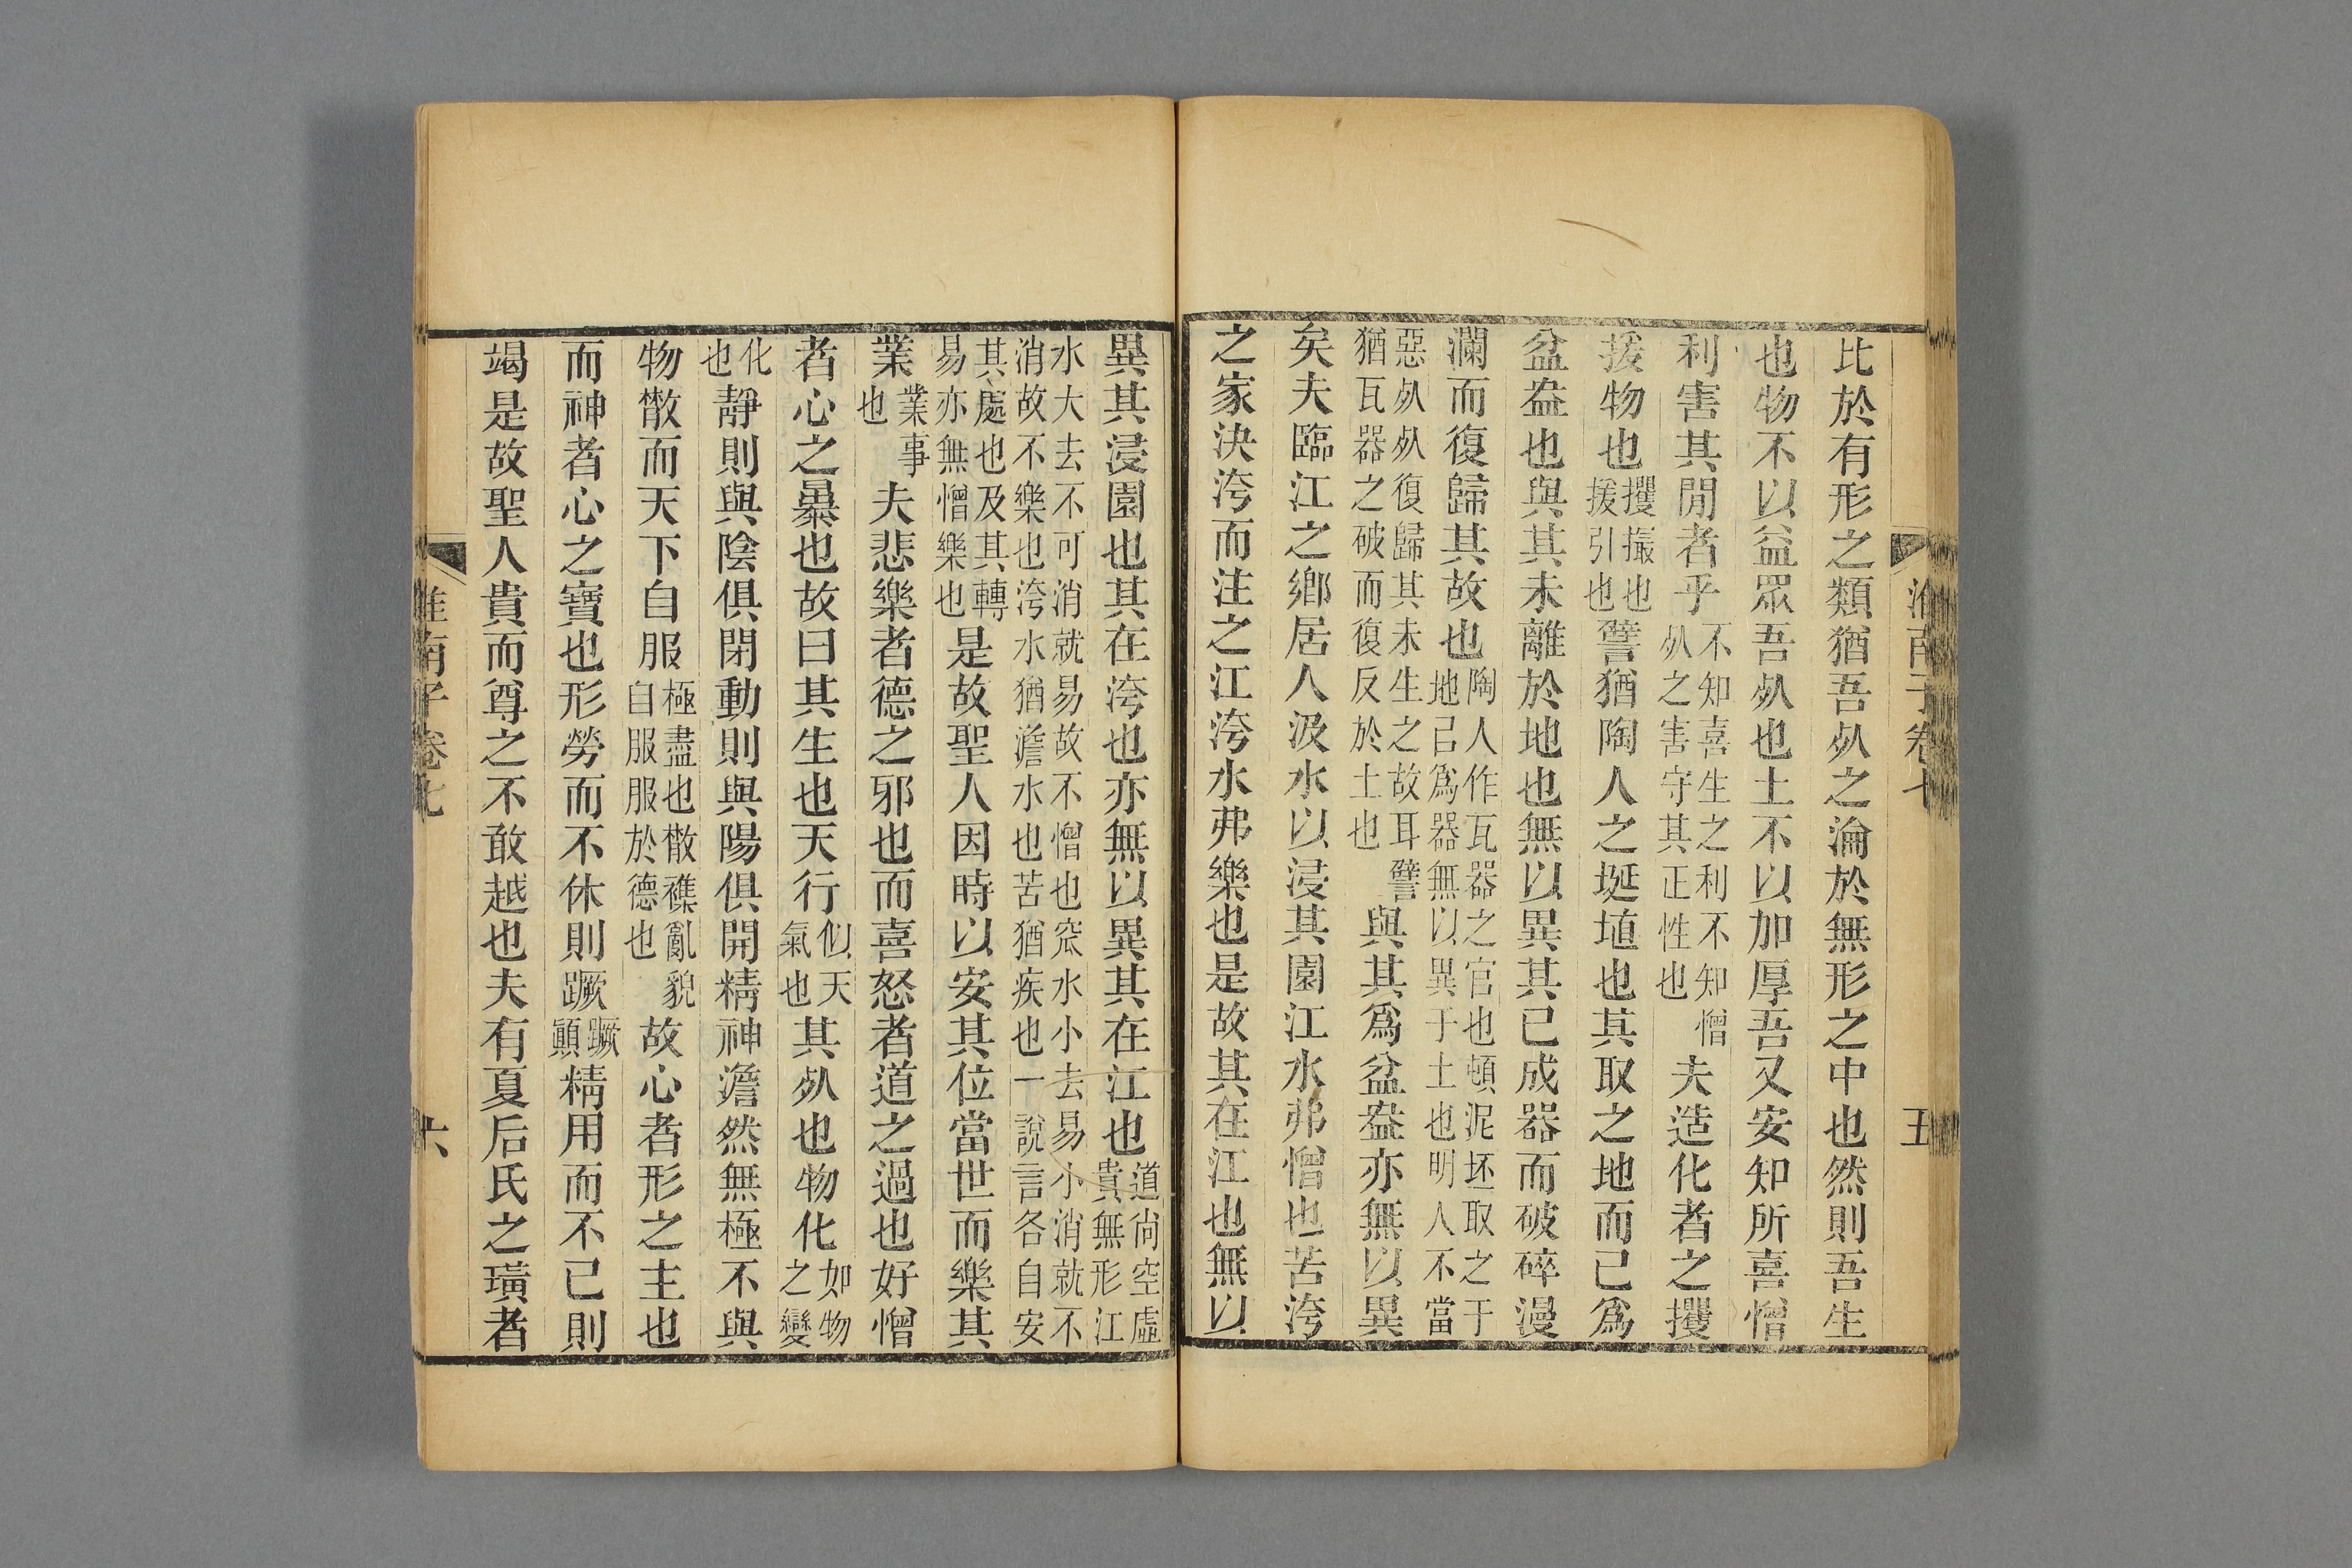 淮南子卷七
五
比於有形之類猶吾𣦸之淪於無形之中也然則吾生
也物不以益眾吾𣦸也土不以加厚吾又安知所喜憎
利害其閒者乎不知喜生之利不知憎𣦸之害守其正性也夫造化者之攫
援物也攫撮也援引也譬猶陶人之埏埴也其取之地而已爲
盆盎也與其未離於地也無以異其已成器而破碎漫
瀾而復歸其故也陶人作瓦器之官也頓泥坯取之于地已爲器無以異于土也明人不當
惡𣦸𣦸復歸其未生之故耳譬猶瓦器之破而復反於土也與其爲盆盎亦無以異
矣夫臨江之鄉居人汲水以浸其園江水弗憎也苦洿
之家決洿而注之江洿水弗樂也是故其在江也無以
異其浸園也其在洿也亦無以異其在江也道尚空虛貴無形江
水大去不可消就易故不憎也窊水小去易小消就不消故不樂也洿水猶澹水也苦猶疾也一說言各自安
其處也及其轉易亦無憎樂也是故聖人因時以安其位當世而樂其
業業事也夫悲樂者德之邪也而喜怒者道之過也好憎
者心之暴也故曰其生也天行似天氣也其𣦸也物化如物之變
化也靜則與陰俱閉動則與陽俱開精神澹然無極不與
物散而天下自服極盡也散襍亂貌自服服於德也故心者形之主也
而神者心之寶也形勞而不休則蹶蹶顚精用而不已則
竭是故聖人貴而尊之不敢越也夫有夏后氏之璜者
淮南子卷七
六